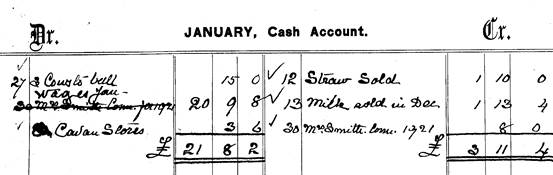 Dr. JANUARY, Cash Account. Cr.
27 3 Courts bull 15 0 12 Straw Sold 1 10 0
Wages Jan 20 9 8 13 Milk sold in Dec 1 13 4
30 Mrs Smith Conn. 1921 30 Mrs Smith Conn. 1921 8 0
Cavan Stores 3 6
£ 21 8 2 £ 3 11 4